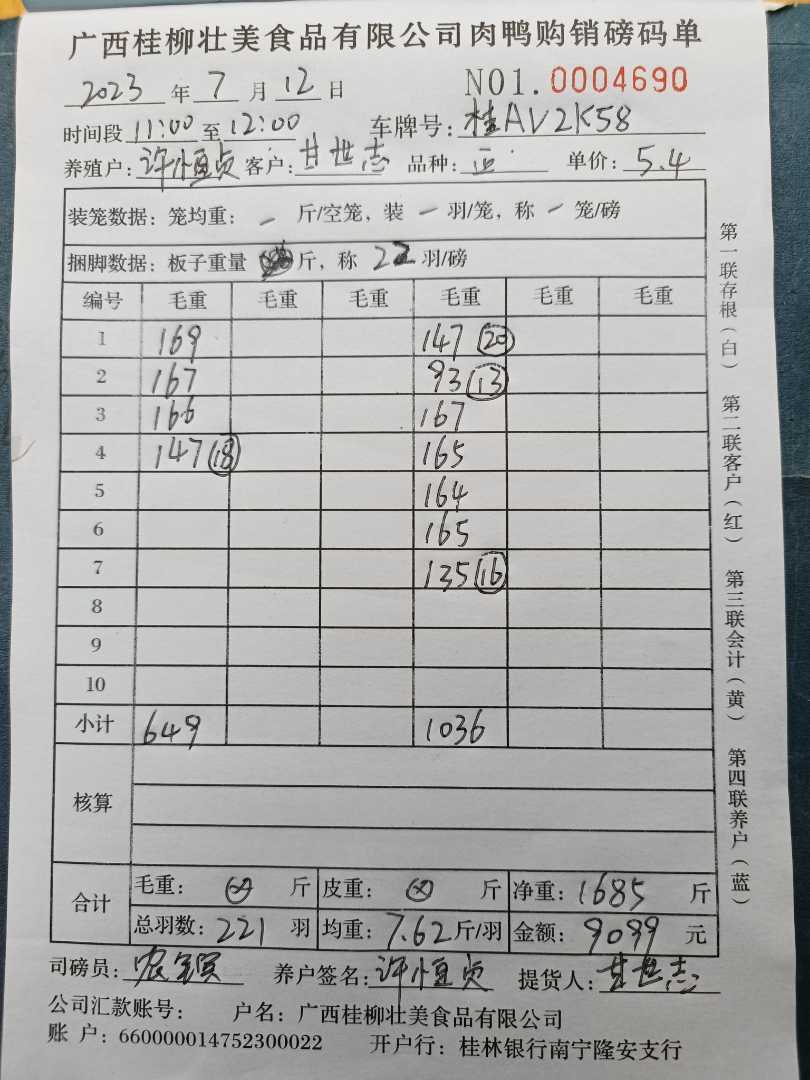 广西桂柳壮美食品有限公司肉鸭购销磅码单
2023 年 7 月 12 日 NO1.0004690
时间段 11:00 至 12:00 车牌号: 桂AV2K58
养殖户: 许恒贞 客户: 甘世志 品种: 正 单价: 5.4
装笼数据: 笼均重: - 斤/空笼, 装 - 羽/笼, 称 - 笼/磅
捆脚数据: 板子重量 斤, 称 22 羽/磅
编号 毛重 毛重 毛重 毛重 毛重 毛重
1 169 147 (20)
2 167 93 (13)
3 166 167
4 147 (18) 165
5 164
6 165
7 135 (16)
8
9
10
小计 649 1036
核算
合计
毛重: ⊗ 斤 皮重: ⊗ 斤 净重: 1685 斤
总羽数: 221 羽 均重: 7.62 斤/羽 金额: 9099 元
司磅员: 养户签名: 许恒贞 提货人: 甘世志
公司汇款账号: 户名: 广西桂柳壮美食品有限公司
账 户: 660000014752300022 开户行: 桂林银行南宁隆安支行
第一联存根(白) 第二联客户(红) 第三联会计(黄) 第四联养户(蓝)